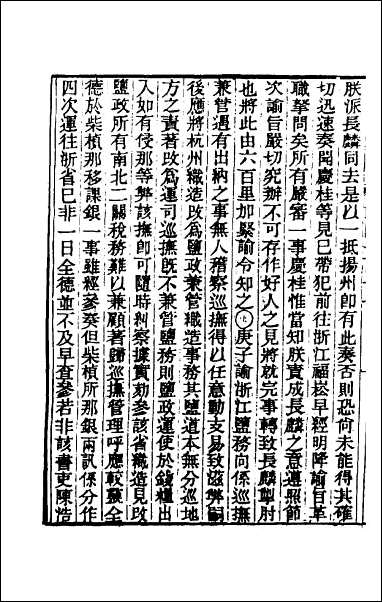 朕派長麟同去是以一抵揚州卽有此奏否則恐尙未能得其確
切迅速奏聞慶桂等見已帶犯前往浙江福崧早經明降諭旨革
職拏問矣所有嚴審一事慶桂惟當知朕責成長麟之意遵照節
次諭旨嚴切究辦不可存作好人之見將就完事轉致長麟掣肘
也將此由六百里加緊諭令知之㊆庚子諭浙江鹽務向係巡撫
兼管遇有出納之事無人稽察巡撫得以任意動支易致滋弊嗣
後應將杭州織造改為鹽政兼管織造事務其鹽道本無分巡地
方之責著改為運司巡撫既不兼管鹽務則鹽政運使於錢糧出
入如有侵那等弊該撫卽可隨時糾察據實劾參該省織造見改
鹽政所有南北二關稅務難以兼顧著歸巡撫管理呼應較靈全
德於柴楨那移課銀一事雖經參奏但柴楨所那銀兩訊係分作
四次運往浙省已非一日全德並不及早查參若非該書吏陳浩